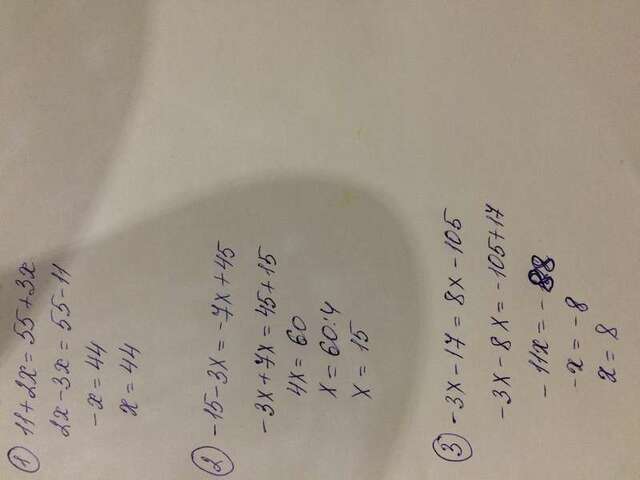 ① 11+2x=55+3x
2x-3x=55-11
-x=44
x=44
② -15-3x=-7x+45
-3x+7x=45+15
4x=60
x=60:4
x=15
③ -3x-17=8x-105
-3x-8x=-105+17
-11x=-88
-x=-8
x=8